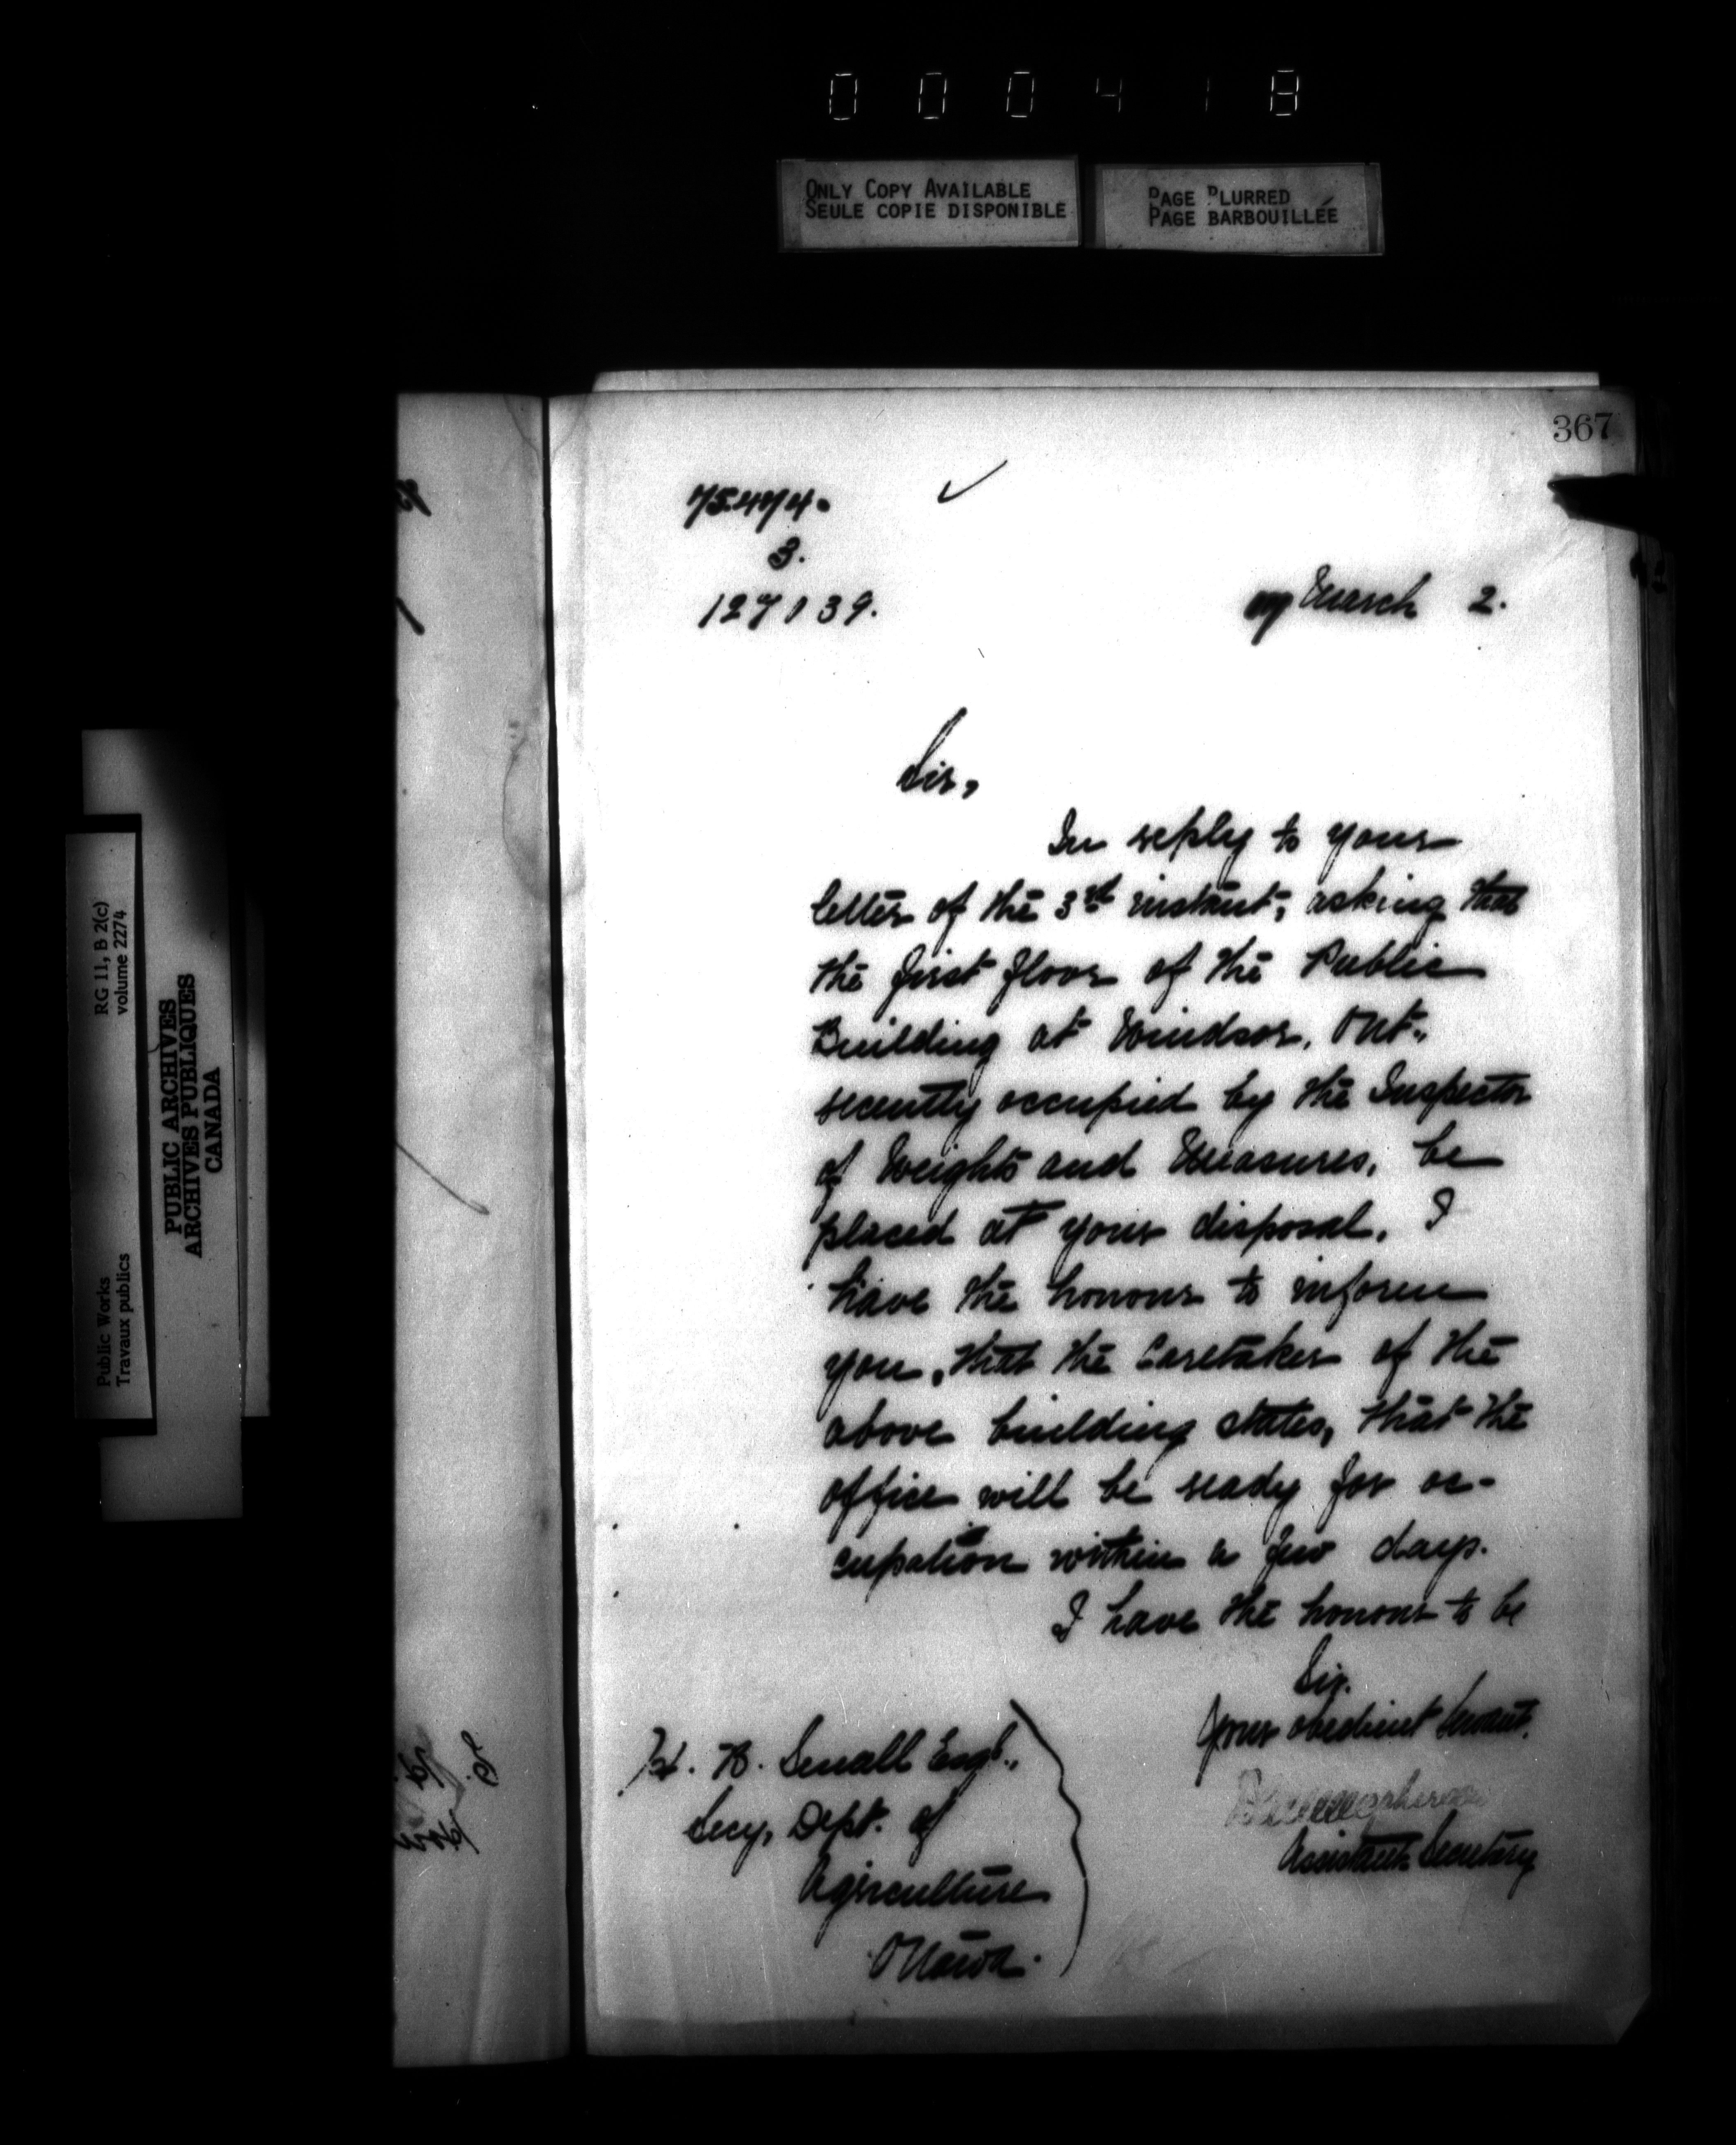 000418
ONLY COPY AVAILABLE
SEULE COPIE DISPONIBLE
PAGE BLURRED
PAGE BARBOUILLÉE
367
75474.
3.
127139.
March 2.
Sir,
In reply to your
letter of the 3rd instant, asking that
the first floor of the Public
Building at Windsor, Ont.,
recently occupied by the Inspector
of Weights and Measures, be
placed at your disposal, I
have the honour to inform
you, that the Caretaker of the
above building states, that the
office will be ready for oc-
cupation within a few days.
I have the honour to be
Sir.
Your obedient Servant.
Assistant Secretary
H. B. Small Esq.,
Secy, Dept. of
Agriculture
Ottawa.
RG 11, B 2(c)
volume 2274
Public Works
Travaux publics
PUBLIC ARCHIVES
ARCHIVES PUBLIQUES
CANADA